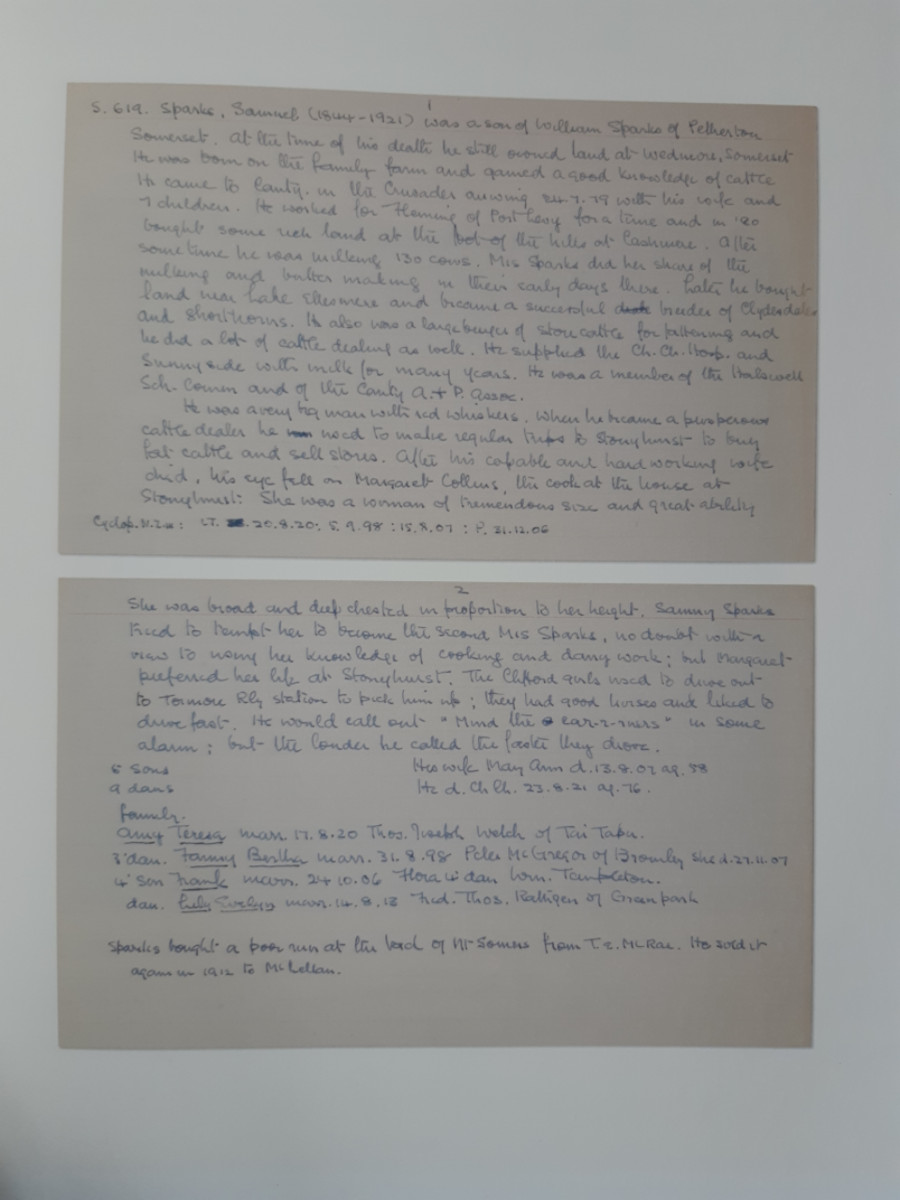 1
S. 619. Sparks, Samuel (1844-1921) was a son of William Sparks of Petherton
Somerset. At the time of his death he still owned land at Wedmore, Somerset
He was born on the family farm and gained a good knowledge of cattle
He came to Canty. in the Crusader arriving 24.7.79 with his wife and
7 children. He worked for Fleming of Port Levy for a time and in '80
bought some rich land at the foot of the hills at Cashmere. After
some time he was milking 130 cows. Mrs Sparks did her share of the
milking and butter making in their early days there. Later he bought
land near Lake Ellesmere and became a successful breeder of Clydesdales
and Shorthorns. He also was a large buyer of store cattle for fattening and
he did a lot of cattle dealing as well. He supplied the Ch. Ch. Hosp. and
Sunnyside with milk for many years. He was a member of the Halswell
Sch. Comm and of the Canty A. + P. Assoc.
He was a very big man with red whiskers. When he became a prosperous
cattle dealer he used to make regular trips to Stonyhurst to buy
fat cattle and sell stores. After his capable and hard working wife
died, his eye fell on Margaret Collins, the cook at the house at
Stonyhurst. She was a woman of tremendous size and great ability
Cyclop. : LT. 20.8.20: 5.9.98 : 15.8.07 : P. 21.12.06
2
She was broad and deep chested in proportion to her height. Sammy Sparks
tried to tempt her to become the second Mrs Sparks, no doubt with a
view to using her knowledge of cooking and dairy work; but Margaret
preferred her life at Stonyhurst. The Clifford girls used to drive out
to Tormore Rly station to pick him up; they had good horses and liked to
drive fast. He would call out "Mind the ear-r-ners" in some
alarm; but the louder he called the faster they drove.
5 sons His wife Mary Ann d. 13.8.07 ag. 58
9 daus He d. Ch Ch. 23.8.21 ag. 76.
family.
Amy Teresa marr. 17.8.20 Thos. Joseph Welch of Tai Tapu.
3' dan. Fanny Bertha marr. 31.8.98 Peter McGregor of Bromley She d. 27.11.07
4' son Frank marr. 24.10.06 Flora 4' dau Wm. Templeton.
dau. Lily Evelyn marr. 14.8.13 Fred. Thos. Rattigan of Greenpark
Sparks bought a poor run at the head of Mt Somers from T.E. McRae. He sold it
again in 1912 to McLellan.